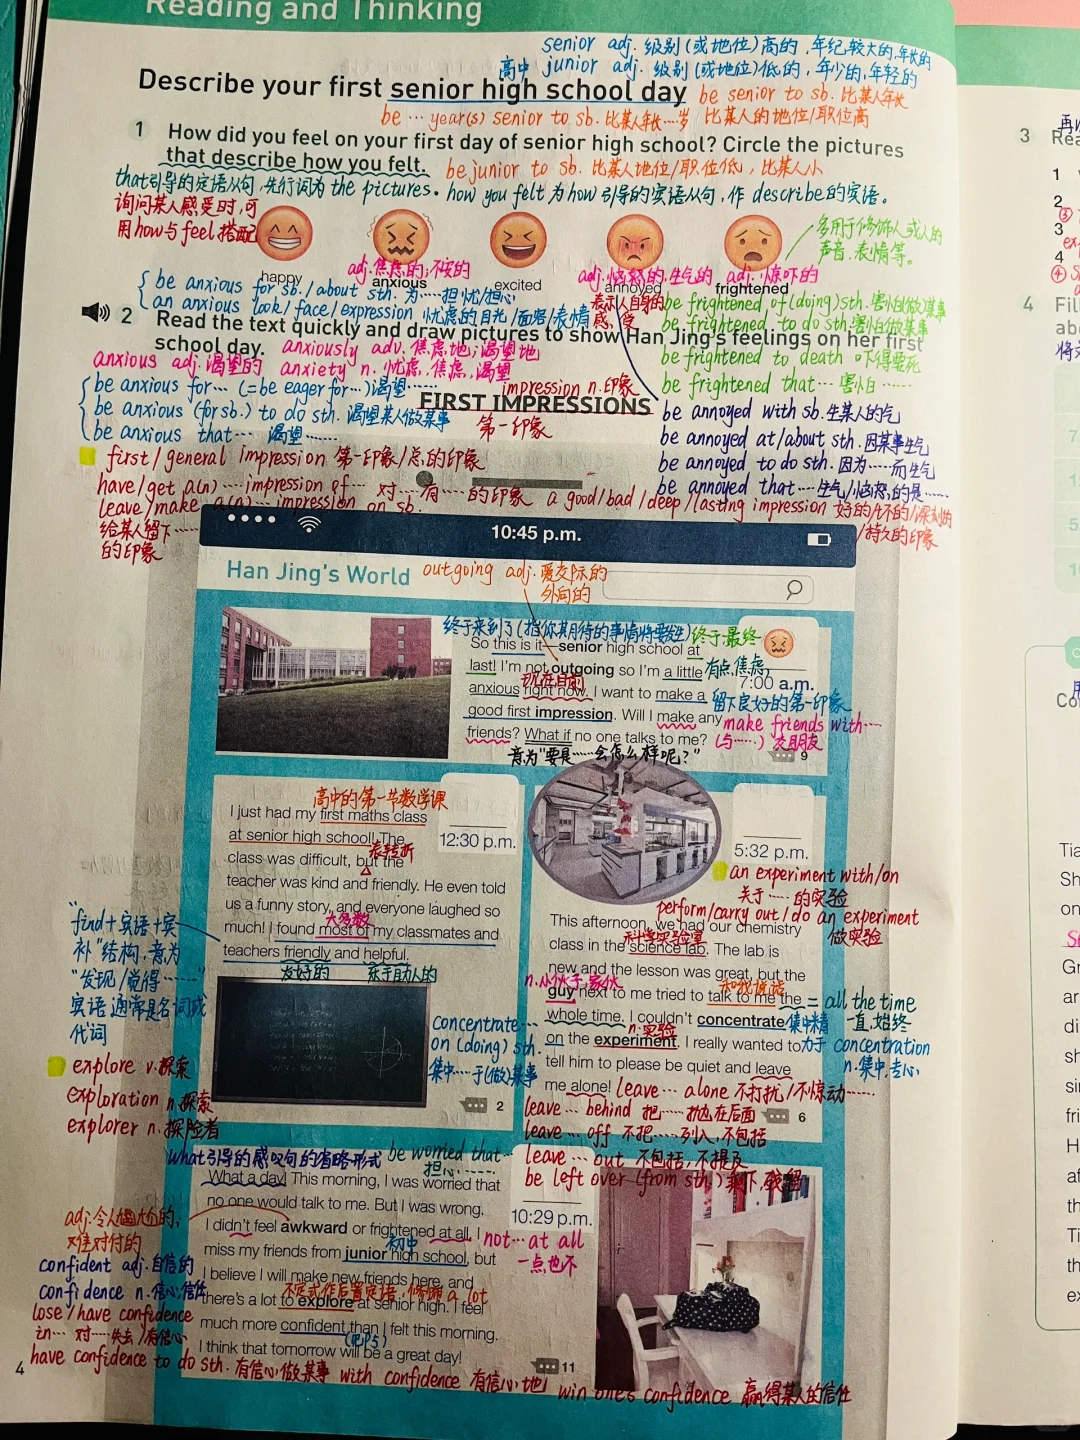 Reading and Thinking
senior adj. 级别(或地位)高的,年纪较大的,年长的
高中 junior adj. 级别(或地位)低的,年少的,年轻的
Describe your first senior high school day
be senior to sb. 比某人年长
be … year(s) senior to sb. 比某人年长…岁 比某人的地位/职位高
1 How did you feel on your first day of senior high school? Circle the pictures
that describe how you felt.
be junior to sb. 比某人地位/职位低,比某人小
that引导的定语从句,先行词为the pictures。how you felt为how引导的宾语从句,作describe的宾语。
询问某人感受时,可
用how与feel搭配
多用于修饰人或人的
声音、表情等。
adj.焦虑的;不安的
adj.恼怒的,生气的
adj.惊吓的
happy anxious excited annoyed frightened
be anxious for sb./about sth. 为…担忧/担心
an anxious look/face/expression 忧虑的目光/面容/表情
表示人自身的
感受
be frightened of(doing)sth.害怕做某事
be frightened to do sth.害怕做某事
be frightened to death 吓得要死
be frightened that… 害怕……
2 Read the text quickly and draw pictures to show Han Jing's feelings on her first
school day.
anxiously adv.焦虑地;渴望地
anxious adj.渴望的 anxiety n.忧虑,焦虑,渴望
be anxious for…(=be eager for…)渴望……
be anxious (for sb.) to do sth. 渴望某人做某事
be anxious that… 渴望……
impression n.印象
FIRST IMPRESSIONS
第一印象
be annoyed with sb.生某人的气
be annoyed at/about sth.因某事生气
be annoyed to do sth.因为……而生气
be annoyed that…生气/恼怒的是……
first/general impression 第一印象/总的印象
have/get a(n)…impression of… 对…有…的印象
a good/bad/deep/lasting impression 好的/坏的/深刻的
/持久的印象
leave/make a(n)…impression on sb.
给某人留下…
的印象
10:45 p.m.
Han Jing's World
outgoing adj.爱交际的
外向的
终于来到了(指你期待的事情将要发生)
终于;最终
So this is it—senior high school at
last! I'm not outgoing so I'm a little
有点焦虑
现在;目前
anxious right now. I want to make a
留下良好的第一印象
good first impression. Will I make any
make friends with…
friends? What if no one talks to me?
(与……)交朋友
意为"要是……会怎么样呢?"
7:00 a.m.
9
高中的第一节数学课
I just had my first maths class
at senior high school! The
表转折
class was difficult, but the
teacher was kind and friendly. He even told
us a funny story, and everyone laughed so
大多数
much! I found most of my classmates and
teachers friendly and helpful.
友好的 乐于助人的
12:30 p.m.
2
"find+宾语+宾
补"结构,意为
"发现/觉得……"
宾语通常是名词或
代词
explore v.探索
exploration n.探索
explorer n.探险者
5:32 p.m.
an experiment with/on
关于……的实验
perform/carry out/do an experiment
做实验
This afternoon, we had our chemistry
科学实验室
class in the science lab. The lab is
new and the lesson was great, but the
n.小伙子,家伙
和我说话
guy next to me tried to talk to me the
= all the time
一直,始终
whole time. I couldn't concentrate
n.实验
on the experiment. I really wanted to
tell him to please be quiet and leave
me alone!
concentrate…
on (doing) sth.
集中…于(做)某事
集中精
力于 concentration
n.集中,专心
leave… alone 不打扰/不惊动……
leave… behind 把……抛在后面
leave… off 不把……列入,不包括
leave… out 不包括,不提及
be left over (from sth.) 剩下,残留
6
what引导的感叹句的省略形式
be worried that…
担心……
What a day! This morning, I was worried that
no one would talk to me. But I was wrong.
I didn't feel awkward or frightened at all. I
初中
miss my friends from junior high school, but
I believe I will make new friends here, and
不定式作后置定语,修饰a lot
there's a lot to explore at senior high. I feel
much more confident than I felt this morning.
I think that tomorrow will be a great day!
10:29 p.m.
not…at all
一点也不
11
adj.令人尴尬的,
难对付的
confident adj.自信的
confidence n.信心;信任
lose/have confidence
in… 对……失去/有信心
have confidence to do sth.有信心做某事 with confidence 有信心地 win one's confidence 赢得某人的信任
4
3
1
2
3
4
4